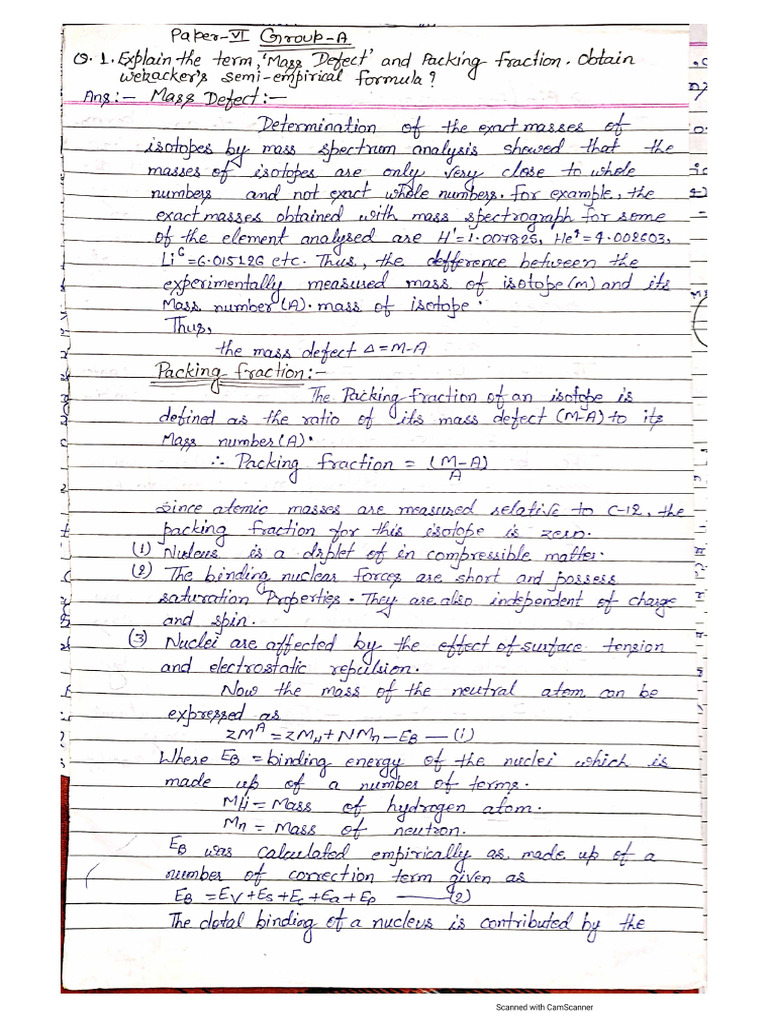 Paper-VI Group-A
Q.1. Explain the term, 'Mass Defect' and Packing fraction. Obtain
Weizacker's semi-empirical formula?
Ans:- Mass Defect:-
Determination of the exact masses of
isotopes by mass spectrum analysis showed that the
masses of isotopes are only very close to whole
numbers and not exact whole numbers. For example, the
exact masses obtained with mass spectrograph for some
of the element analysed are H¹=1.007825, He⁴=4.002603,
Li⁶=6.015126 etc. Thus, the defference between the
experimentally measured mass of isotope (m) and its
Mass number (A). mass of isotope.
Thus,
the mass defect Δ=M-A
Packing fraction:-
The Packing fraction of an isotope is
defined as the ratio of its mass defect (M-A) to its
Mass number (A).
∴ Packing fraction = (M-A)
A
Since atomic masses are measured relative to C-12, the
packing fraction for this isotope is zero.
(1) Nucleus is a droplet of in compressible matter.
(2) The binding nuclear forces are short and possess
saturation Properties. They are also independent of charge
and spin.
(3) Nuclei are affected by the effect of surface tension
and electrostatic repulsion.
Now the mass of the neutral atom can be
expressed as
ZMᴬ = ZMH+NMn-EB — (i)
Where EB = binding energy of the nuclei which is
made up of a number of terms.
MH = Mass of hydrogen atom.
Mn = Mass of neutron.
EB was calculated empirically as made up of a
number of correction term given as
EB = EV+ES+Ec+Ea+Ep — (2)
The total binding of a nucleus is contributed by the
Scanned with CamScanner